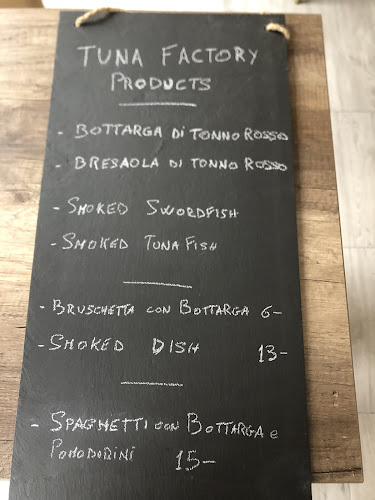 TUNA FACTORY
PRODUCTS
- BOTTARGA Di TONNO ROSSO
- BRESAOLA Di TONNO ROSSO
- SMOKED SWORDFISH
- SMOKED TUNA FISH
- BRUSCHETTA CON BOTTARGA 6-
- SMOKED DISH 13-
- SPAGHETTI CON BOTTARGA e
POMODORINI 15-